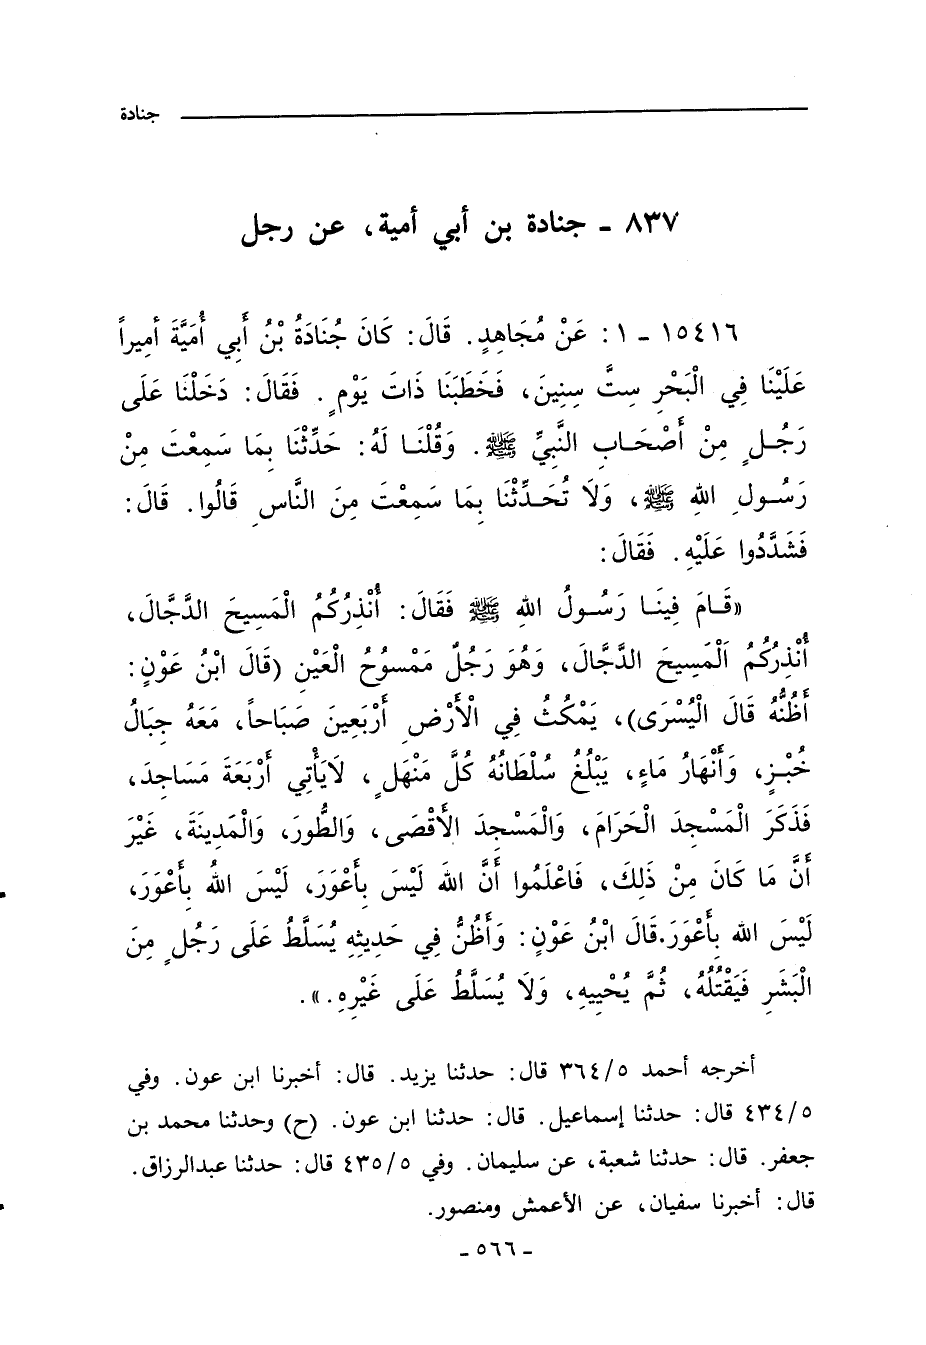 جنادة
٨٣٧ ـ جنادة بن أبي أمية، عن رجل
١٥٤١٦ ـ ١: عَنْ مُجَاهِدٍ. قَالَ: كَانَ جُنَادَةُ بْنُ أَبِي أُمَيَّةَ أَمِيراً
عَلَيْنَا فِي الْبَحْرِ سِتَّ سِنِينَ، فَخَطَبَنَا ذَاتَ يَوْمٍ. فَقَالَ: دَخَلْنَا عَلَى
رَجُلٍ مِنْ أَصْحَابِ النَّبِيِّ ﷺ. وَقُلْنَا لَهُ: حَدِّثْنَا بِمَا سَمِعْتَ مِنْ
رَسُولِ اللهِ ﷺ، وَلَا تُحَدِّثْنَا بِمَا سَمِعْتَ مِنَ النَّاسِ قَالُوا. قَالَ:
فَشَدَّدُوا عَلَيْهِ. فَقَالَ:
«قَامَ فِينَا رَسُولُ اللهِ ﷺ فَقَالَ: أُنْذِرُكُمُ الْمَسِيحَ الدَّجَّالَ،
أُنْذِرُكُمُ الْمَسِيحَ الدَّجَّالَ، وَهُوَ رَجُلٌ مَمْسُوحُ الْعَيْنِ (قَالَ ابْنُ عَوْنٍ:
أَظُنُّهُ قَالَ الْيُسْرَى)، يَمْكُثُ فِي الْأَرْضِ أَرْبَعِينَ صَبَاحاً، مَعَهُ جِبَالُ
خُبْزٍ، وَأَنْهَارُ مَاءٍ، يَبْلُغُ سُلْطَانُهُ كُلَّ مَنْهَلٍ، لَايَأْتِي أَرْبَعَةَ مَسَاجِدَ،
فَذَكَرَ الْمَسْجِدَ الْحَرَامَ، وَالْمَسْجِدَ الأَقْصَى، وَالطُّورَ، وَالْمَدِينَةَ، غَيْرَ
أَنَّ مَا كَانَ مِنْ ذَلِكَ، فَاعْلَمُوا أَنَّ اللهَ لَيْسَ بِأَعْوَرَ، لَيْسَ اللهُ بِأَعْوَرَ،
لَيْسَ الله بِأَعْوَرَ.قَالَ ابْنُ عَوْنٍ: وَأَظُنُّ فِي حَدِيثِهِ يُسَلَّطُ عَلَى رَجُلٍ مِنَ
الْبَشَرِ فَيَقْتُلُهُ، ثُمَّ يُحْيِيهِ، وَلَا يُسَلَّطُ عَلَى غَيْرِهِ.».
أخرجه أحمد ٣٦٤/٥ قال: حدثنا يزيد. قال: أخبرنا ابن عون. وفي
٤٣٤/٥ قال: حدثنا إسماعيل. قال: حدثنا ابن عون. (ح) وحدثنا محمد بن
جعفر. قال: حدثنا شعبة، عن سليمان. وفي ٤٣٥/٥ قال: حدثنا عبدالرزاق.
قال: أخبرنا سفيان، عن الأعمش ومنصور.
ـ ٥٦٦ ـ